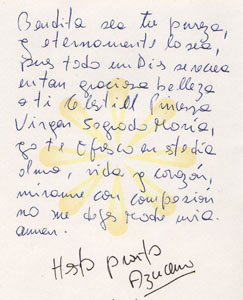 Bendita sea tu pureza,
y eternamente lo sea,
pues todo un Dios se recrea
en tan graciosa belleza
a ti Celestial Princesa
Virgen Sagrada María,
yo te ofrezco en este día
alma, vida y corazón,
mirame con compasión
no me dejes madre mía.
amen.
Hasta pronto
Azucena